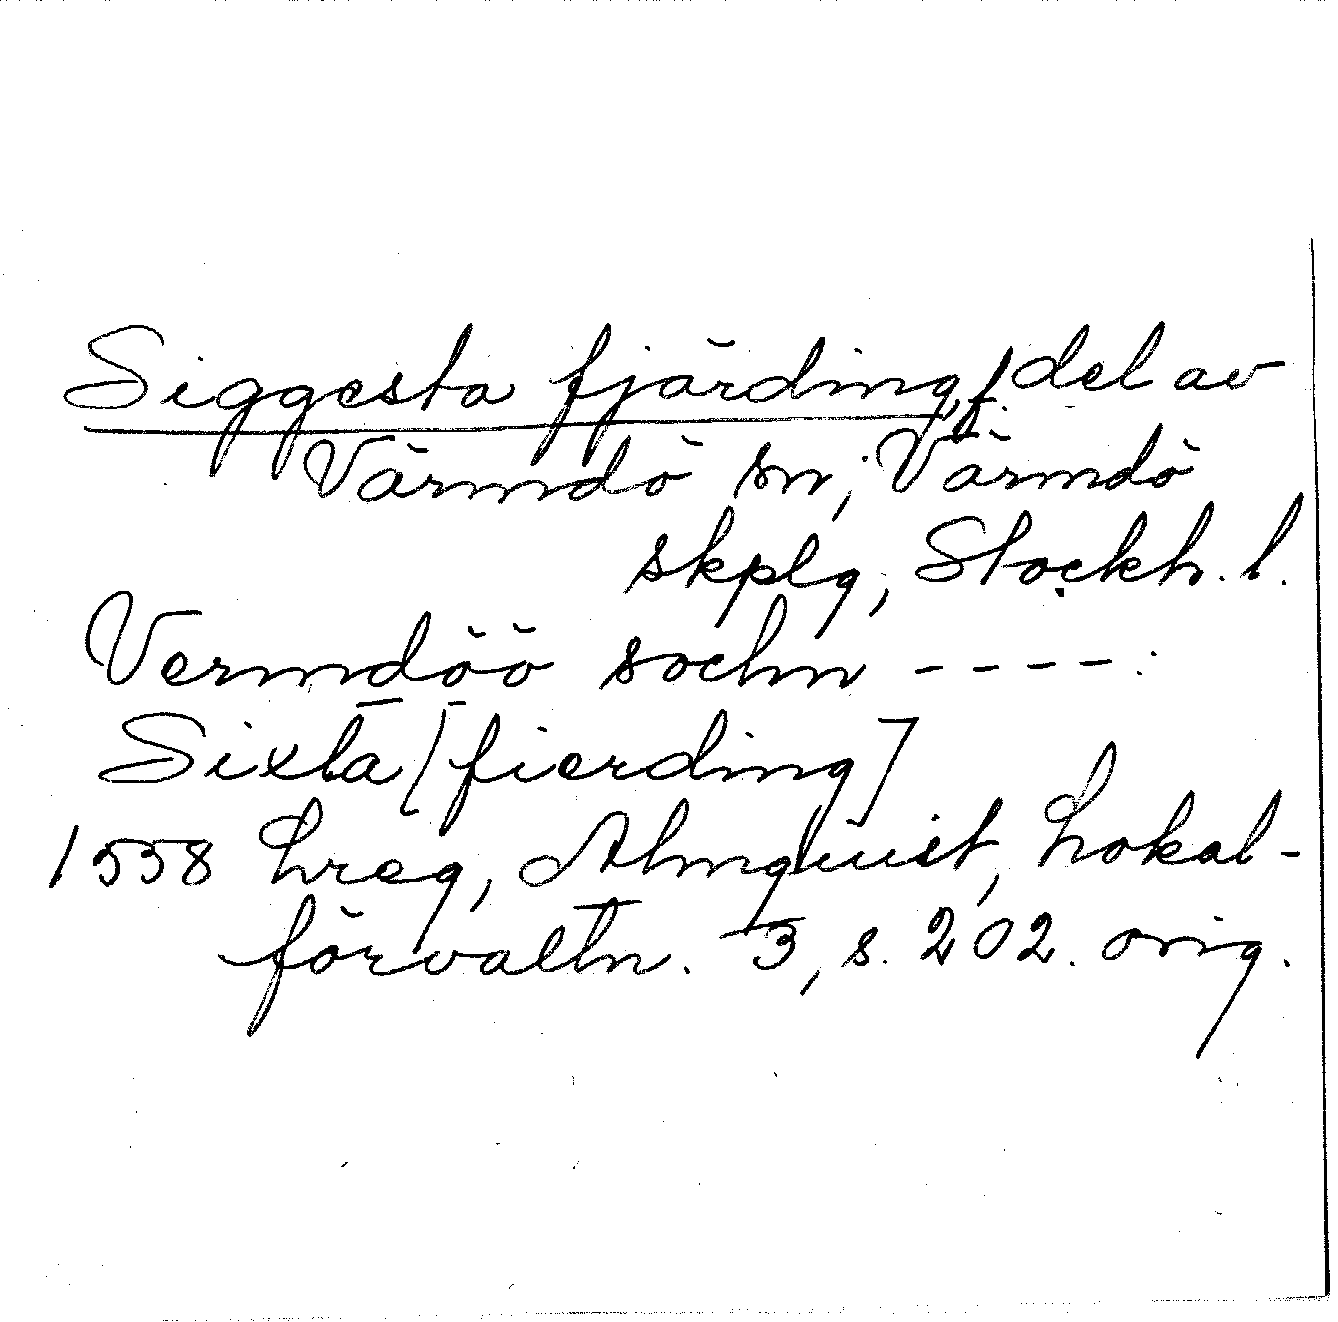 Siggesta fjärding, f. del av
Värmdö sn, Värmdö
skplg, Stockh. l.
Vermdöö sochn ----:
Sixta [fierding]
1558 Lreg, Almquist, Lokal-
förvaltn. 3, s. 202. orig.